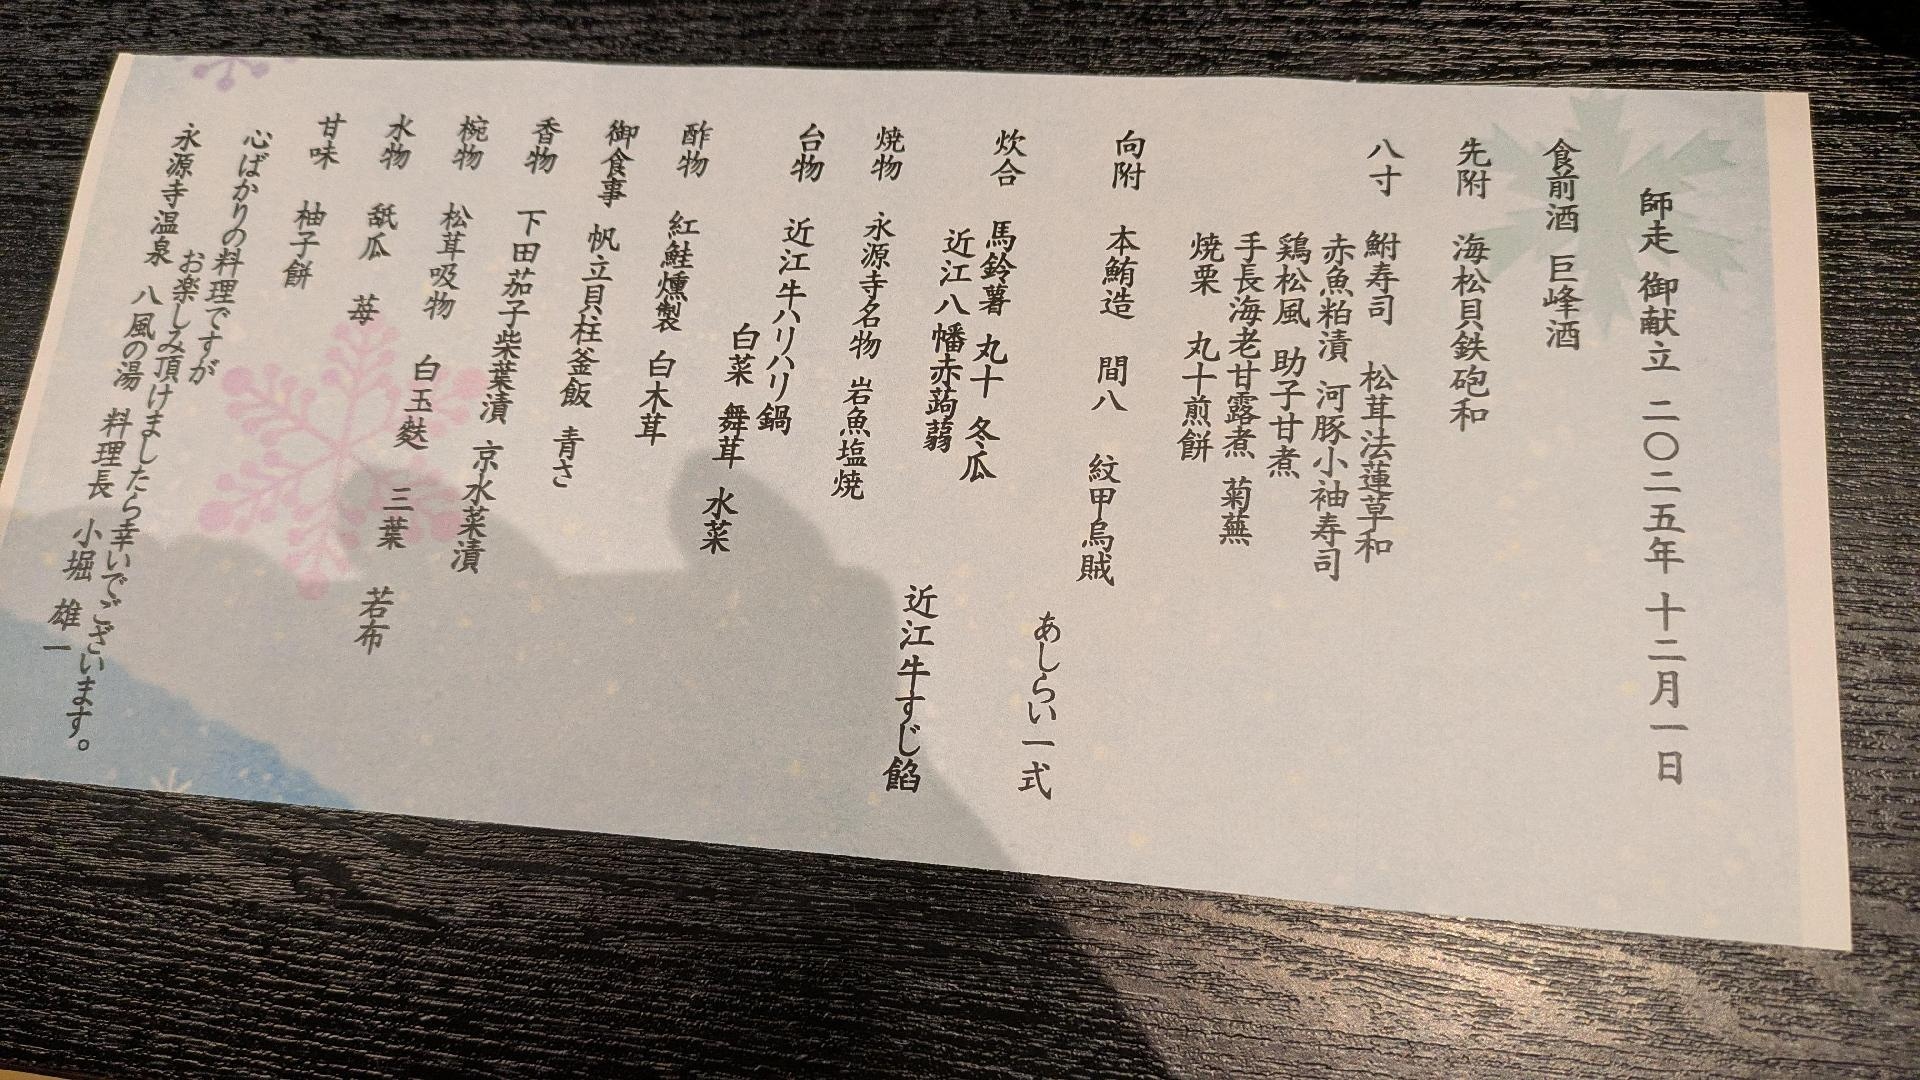 師走 御献立 二〇二五年 十二月一日
食前酒 巨峰酒
先附 海松貝鉄砲和
八寸 鮒寿司 松茸法蓮草和
赤魚粕漬 河豚小袖寿司
鶏松風 助子甘煮
手長海老甘露煮 菊蕪
焼栗 丸十煎餅
向附 本鮪造 間八 紋甲烏賊
あしらい一式
炊合 馬鈴薯 丸十 冬瓜
近江八幡赤蒟蒻
近江牛すじ餡
焼物 永源寺名物 岩魚塩焼
台物 近江牛ハリハリ鍋
白菜 舞茸 水菜
酢物 紅鮭燻製 白木茸
御食事 帆立貝柱釜飯 青さ
香物 下田茄子柴葉漬 京水菜漬
椀物 松茸吸物 白玉麩 三葉 若布
水物 舐瓜 苺
甘味 柚子餅
心ばかりの料理ですが
お楽しみ頂けましたら幸いでございます。
永源寺温泉 八風の湯 料理長 小堀 雄一